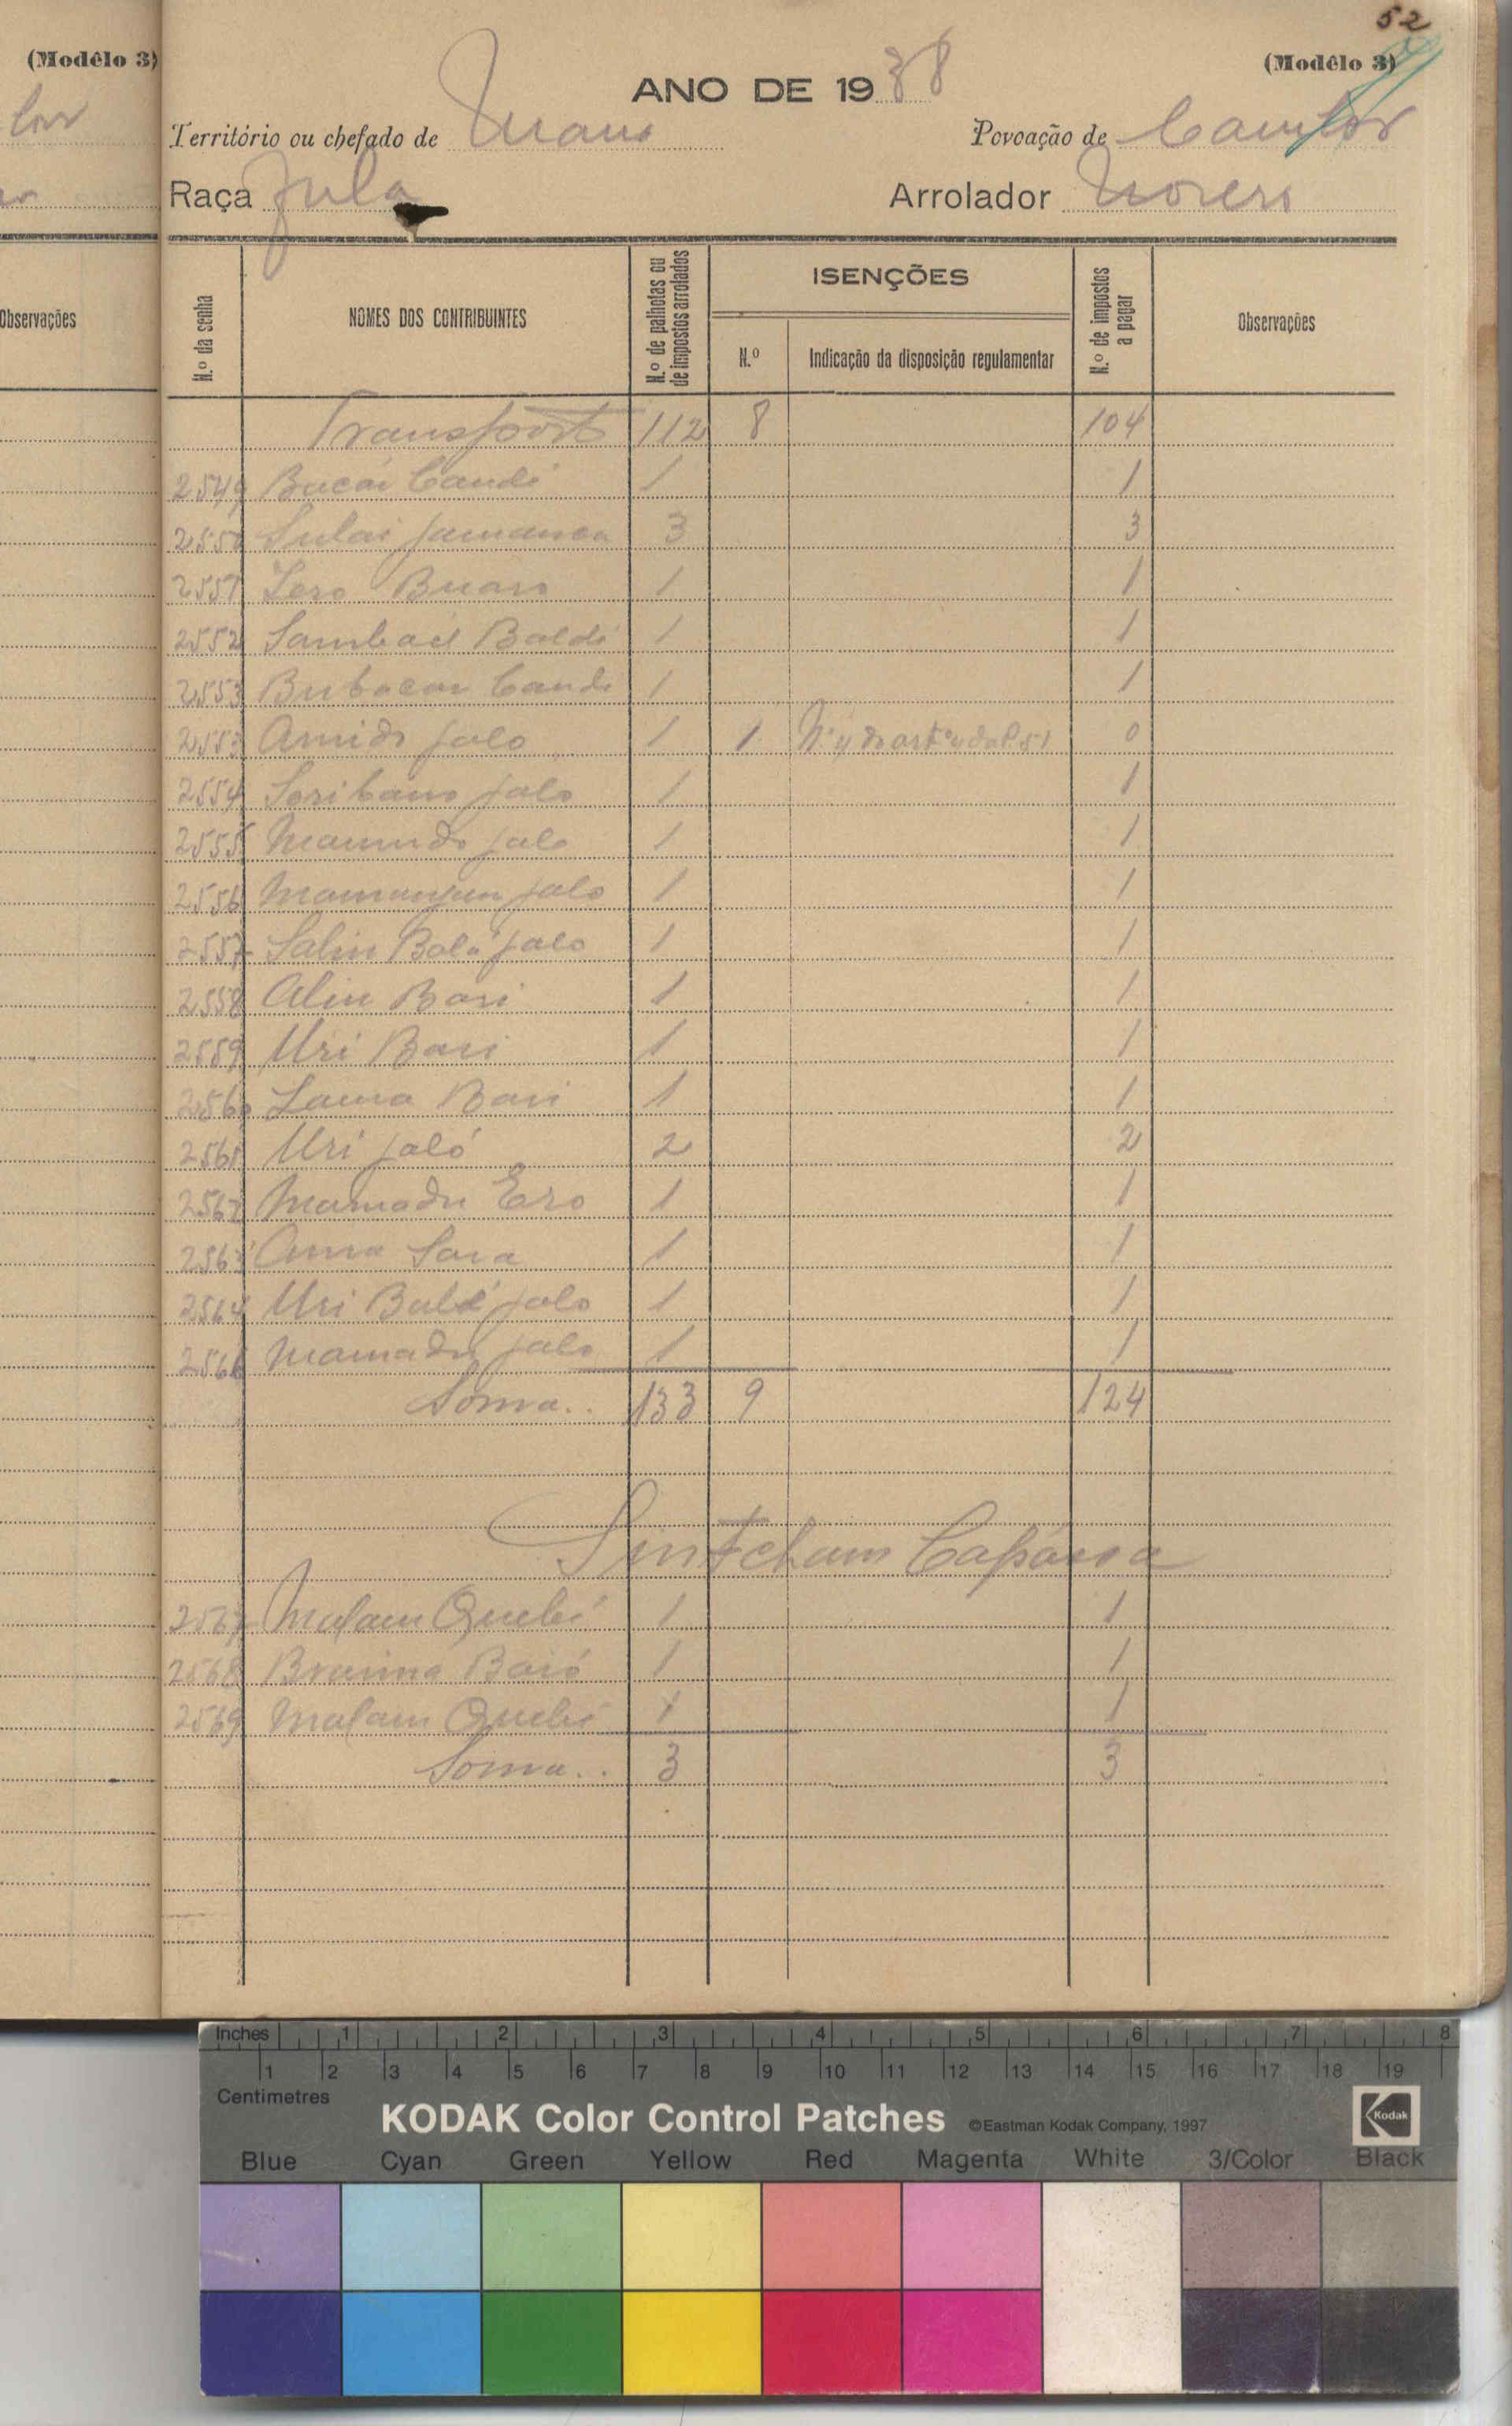 52
(Modêlo 3)
(Modêlo 3)
ANO DE 1938
Território ou chefado de Mana
Povoação de Camfor
Raça Fula
Arrolador Morers
Observações
N.º da senha
NOMES DOS CONTRIBUINTES
N.º de palhotas ou de impostos arrolados
ISENÇÕES
N.º
Indicação da disposição regulamentar
N.º de impostos a pagar
Observações
Transporte 112 8 104
2549 Bacái Candé 1 1
2550 Sulai Jamanca 3 3
2551 Lero Buaro 1 1
2552 Sambael Baldé 1 1
2553 Bubacar Candé 1 1
2553 Amido Jalo 1 1 0
2554 Soribano Jalo 1 1
2555 Mamudo Jalo 1 1
2556 Jalo 1 1
2557 Saliu Balé Jalo 1 1
2558 Aliu Bari 1 1
2559 Uri Bari 1 1
2560 Lama Bari 1 1
2561 Uri Jaló 2 2
2562 Mamadu Ero 1 1
2563 Amra Sara 1 1
2564 Uri Baldé Jalo 1 1
2566 Mamadu Jalo 1 1
Soma.. 133 9 124
Sintcham
2567 Malam Quebé 1 1
2568 Braima Baió 1 1
2569 Malam Quebé 1 1
Soma.. 3 3
Inches 1 2 3 4 5 6 7 8
1 2 3 4 5 6 7 8 9 10 11 12 13 14 15 16 17 18 19
Centimetres
KODAK Color Control Patches ©Eastman Kodak Company, 1997 Kodak
Blue Cyan Green Yellow Red Magenta White 3/Color Black